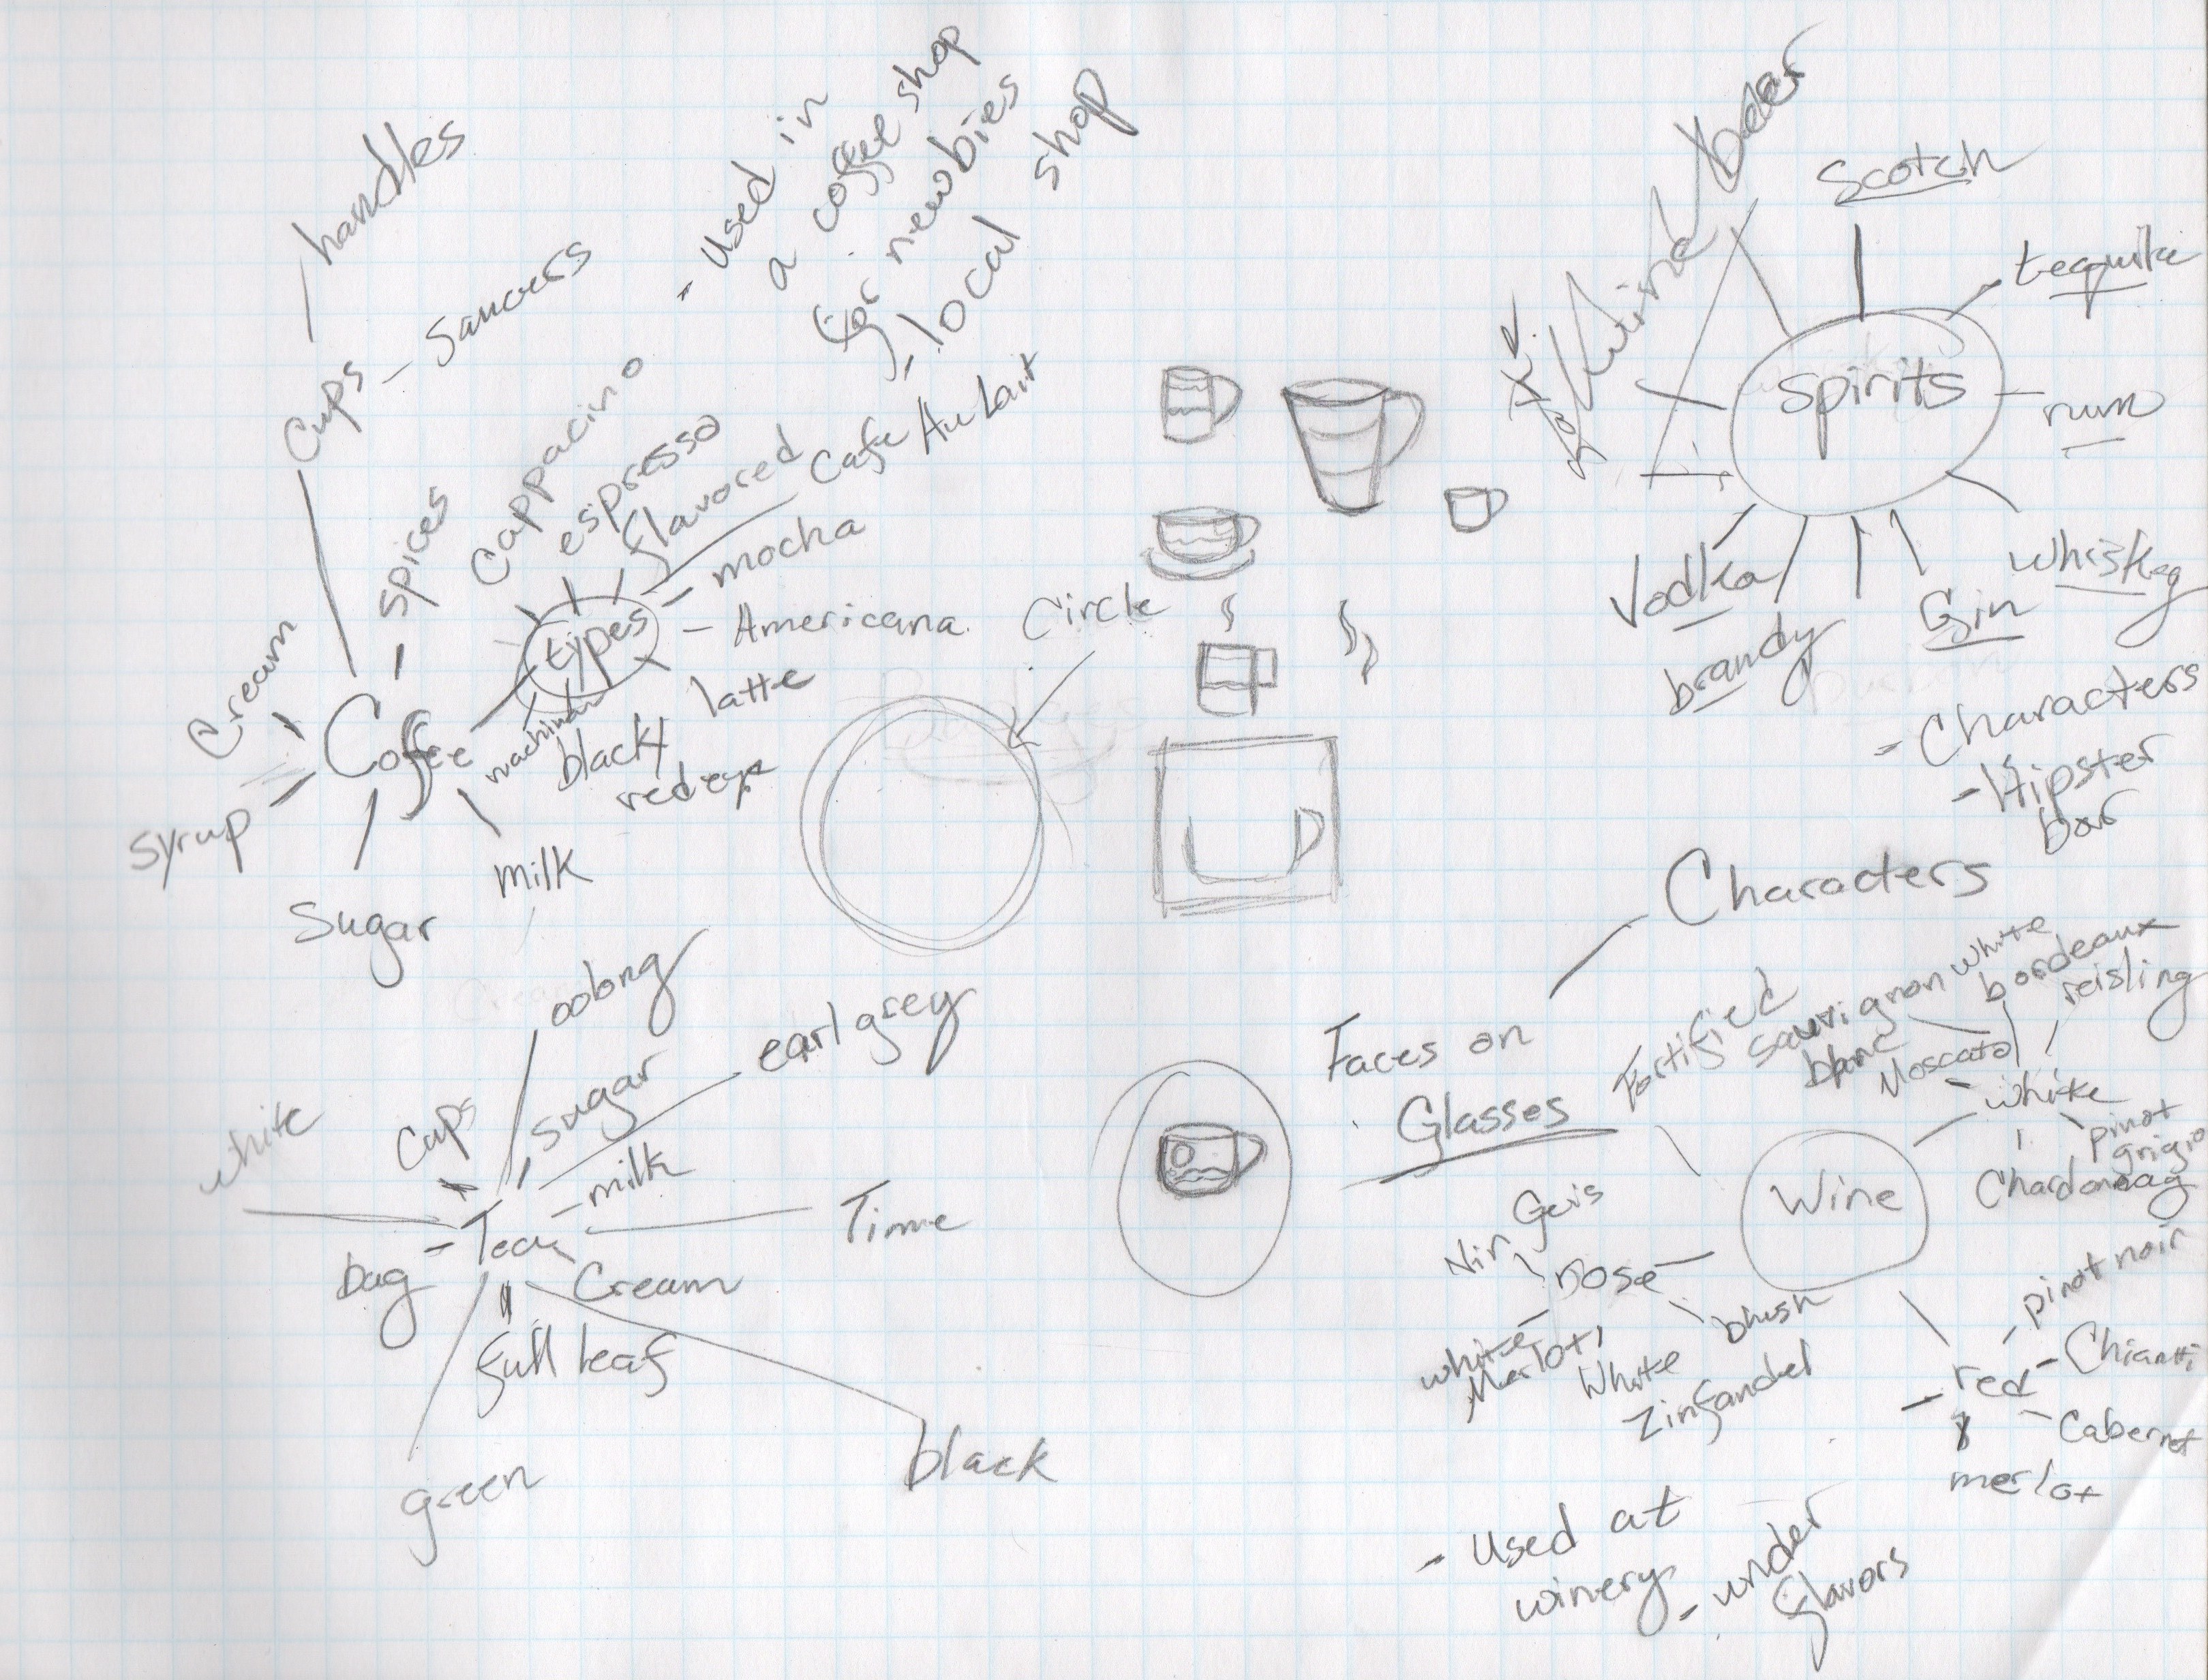 handles
Cups
saucers
- used in
a coffee shop
for newbies
- local shop
Cream
spices
Cappacino
espresso
flavored
Cafe Au Lait
types
mocha
Americana
latte
black
red eye
Coffee
syrup
Sugar
milk
Circle
wine
beer
Scotch
tequila
rum
Spirits
whiskey
Vodka
brandy
Gin
- Characters
- Hipster
bar
Characters
Faces on
Glasses
oolong
earl grey
sugar
Cups
white
milk
Tea
Time
bag
Cream
full leaf
green
black
Fortified
sauvignon
blanc
white
bordeaux
reisling
Moscato
white
pinot
grigio
Wine
rose
blush
white
Merlot
White
Zinfandel
pinot noir
red
Chianti
Cabernet
merlot
- used at
winery
- under
flavors